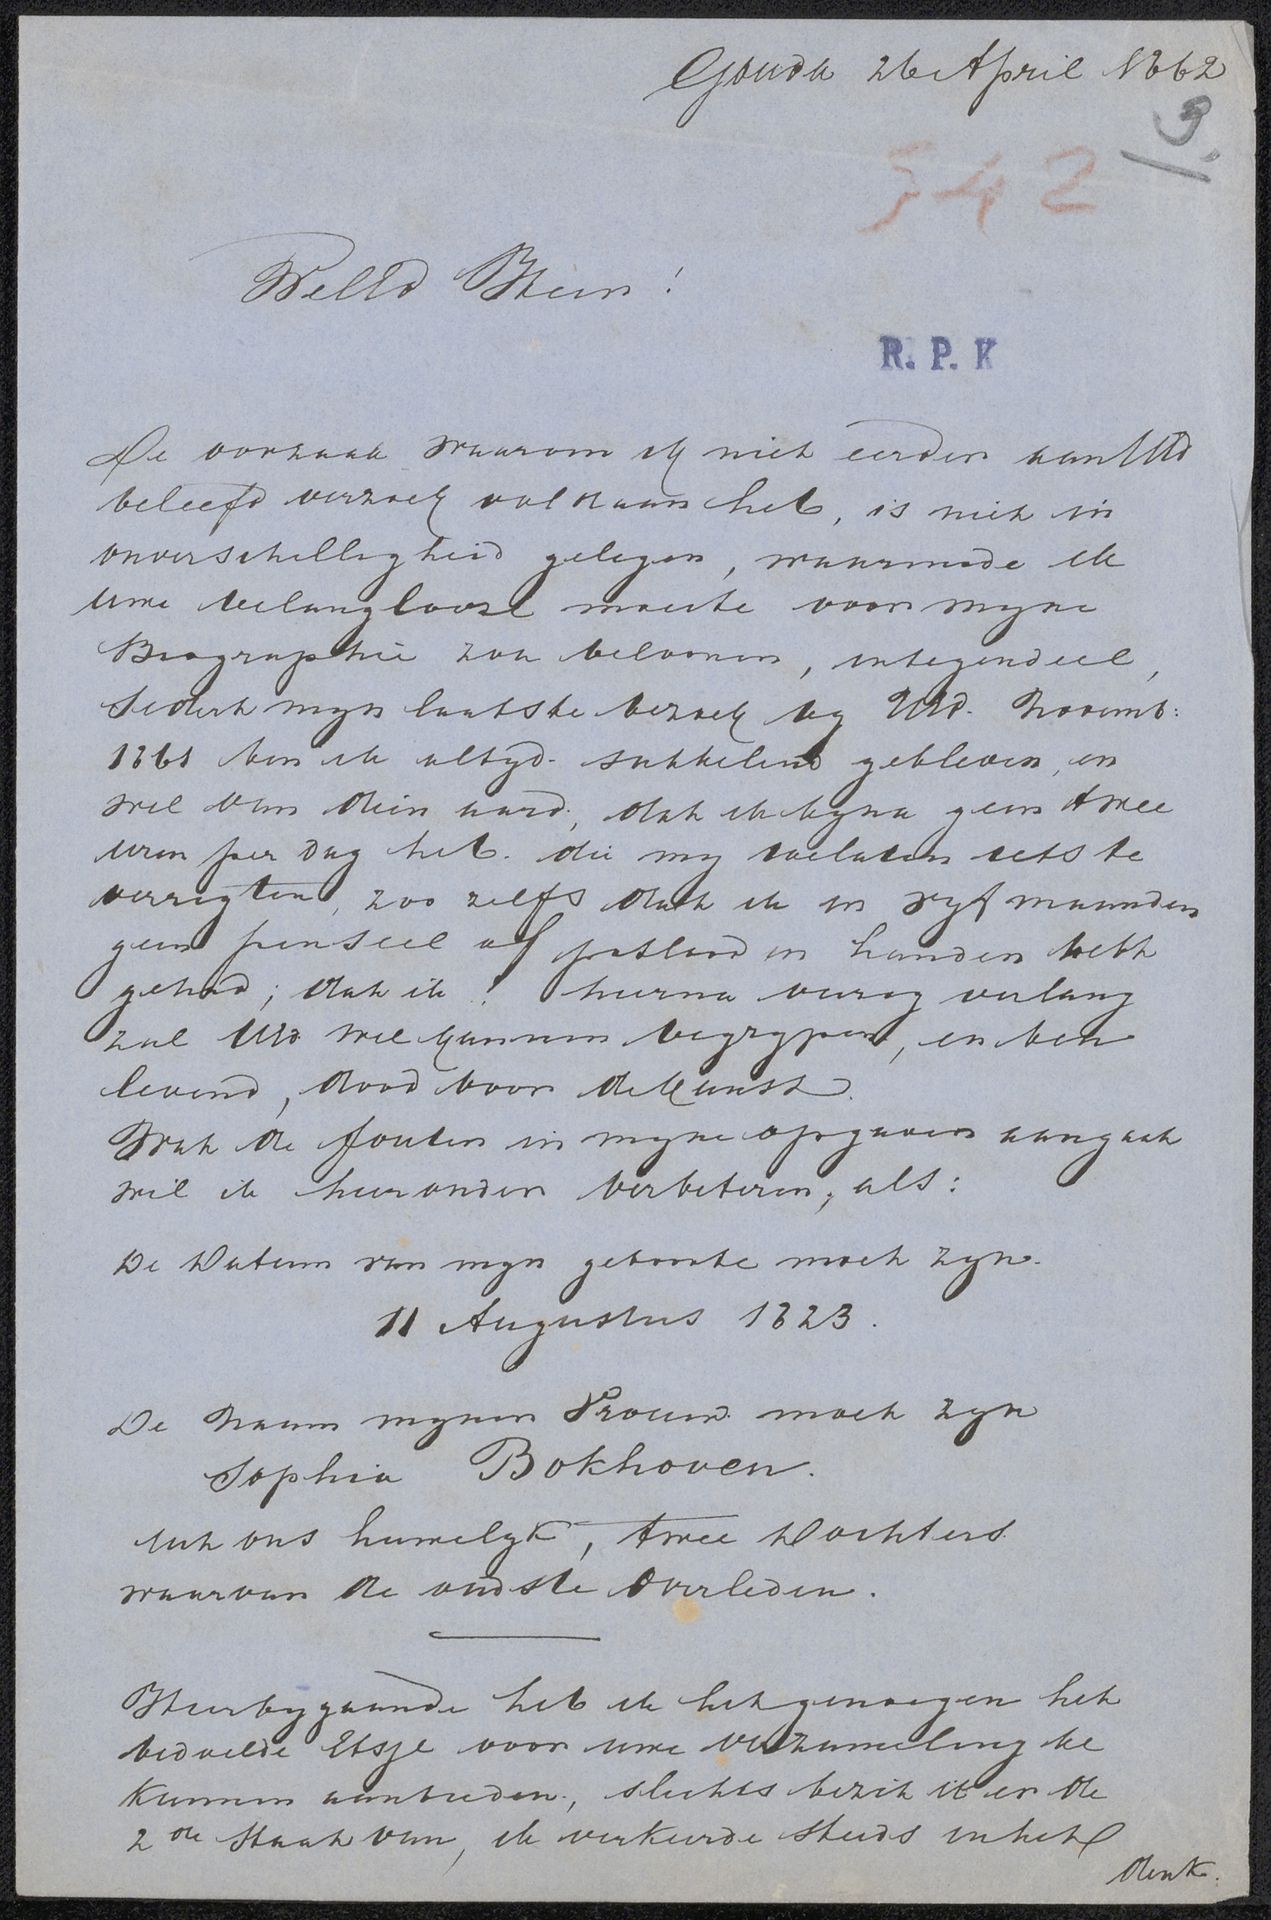 Gouda 26 April 1862
3.
342
WelEd Heer!
R. P. K
De oorzaak waarom ik niet eerder aan UEd
beleefd verzoek voldaan heb, is niet in
onverschilligheid gelegen, waarmede ik
uwe belanglooze moeite voor myne
Biographie zou beloonen, integendeel,
Sedert myn laatste bezoek by UEd. Novemb:
1861 ben ik altyd sukkelend gebleven, en
wel van dien aard, dat ik byna geen twee
uren per dag heb die my toelaten iets te
verrigten, zoo zelfs dat ik in vyf maanden
geen penseel of potlood in handen hebt
gehad; dat ik ! hierna vurig verlang
zal UEd wel kunnen begrypen, en ben
levend, dood voor de Kunst.
Wat de fouten in myne opgaven aangaat
wil ik hieronder verbeteren, als:
De Datum van myn geboorte moet zyn.
11 Augustus 1823.
De Naam myner Vrouw moet zyn
Sophia Bokhoven.
Uit ons huwelyk, twee Dochters
waarvan de oudste overleden.
Hierbygaande heb ik het genoegen het
bedoelde Etsje voor uwe verzameling te
kunnen aanbieden, slechts bezit ik er de
2de Staat van, ik verkeerde steeds in het
denk.